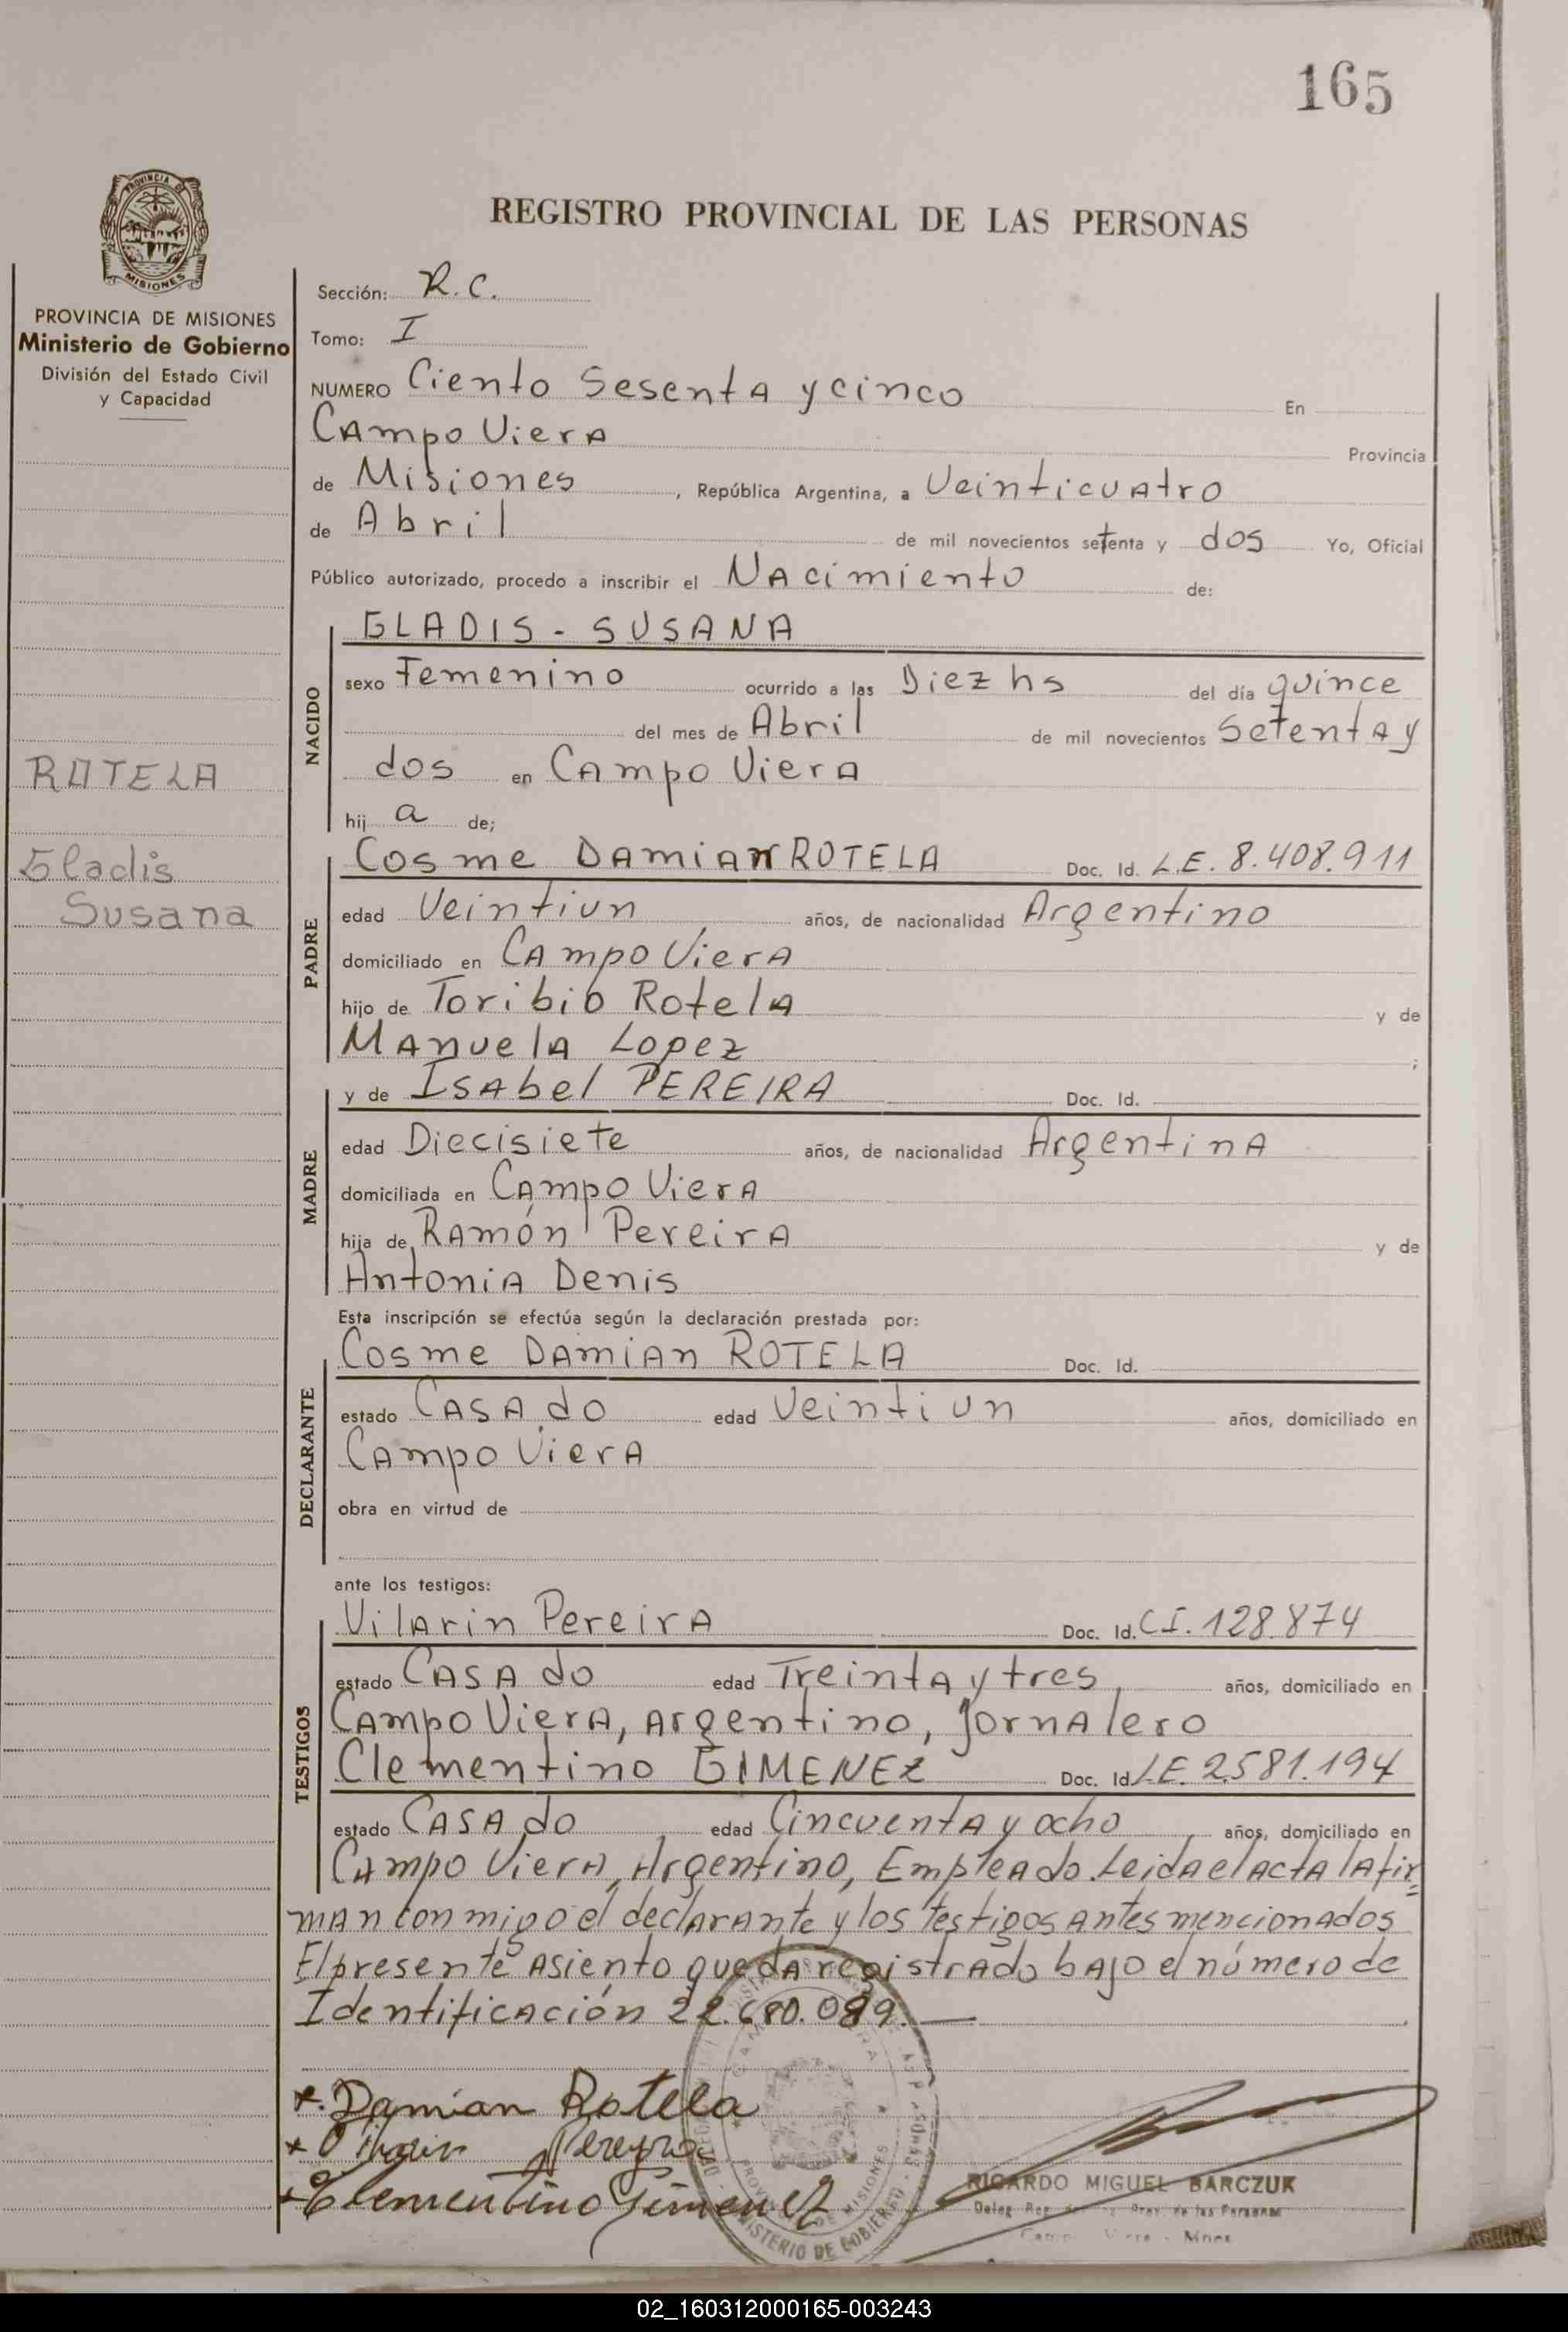 165
PROVINCIA DE
MISIONES
REGISTRO PROVINCIAL DE LAS PERSONAS
PROVINCIA DE MISIONES
Ministerio de Gobierno
División del Estado Civil
y Capacidad
ROTELA
Gladis
Susana
Sección: R.C.
Tomo: I
NUMERO Ciento Sesenta y cinco En
Campo Viera Provincia
de Misiones, República Argentina, a Veinticuatro
de Abril de mil novecientos setenta y dos Yo, Oficial
Público autorizado, procedo a inscribir el Nacimiento de:
NACIDO
GLADIS - SUSANA
sexo Femenino ocurrido a las Diez hs del día quince
del mes de Abril de mil novecientos setenta y
dos en Campo Viera
hij a de;
PADRE
Cosme Damian ROTELA Doc. Id. L.E. 8.408.911
edad Veintiun años, de nacionalidad Argentino
domiciliado en Campo Viera
hijo de Toribio Rotela y de
Manuela Lopez ;
MADRE
y de Isabel PEREIRA Doc. Id.
edad Diecisiete años, de nacionalidad Argentina
domiciliada en Campo Viera
hija de Ramón Pereira y de
Antonia Denis
Esta inscripción se efectúa según la declaración prestada por:
DECLARANTE
Cosme Damian ROTELA Doc. Id.
estado Casado edad Veintiun años, domiciliado en
Campo Viera
obra en virtud de
ante los testigos:
TESTIGOS
Vilarin Pereira Doc. Id. C.I. 128.874
estado Casado edad Treinta y tres, años, domiciliado en
Campo Viera, Argentino, Jornalero
Clementino GIMENEZ Doc. Id. L.E. 2.581.194
estado Casado edad Cincuenta y ocho, años, domiciliado en
Campo Viera, Argentino, Empleado. Leida el acta la fir=
man conmigo el declarante y los testigos antes mencionados
El presente Asiento queda registrado bajo el número de
Identificación 22.680.089.—
x. Damian Rotela
x Pereyra
x Clementino Gimenez
PROVINCIA DE MISIONES
MINISTERIO DE GOBIERNO
RICARDO MIGUEL BARCZUK
Prov. de las Personas
02_160312000165-003243